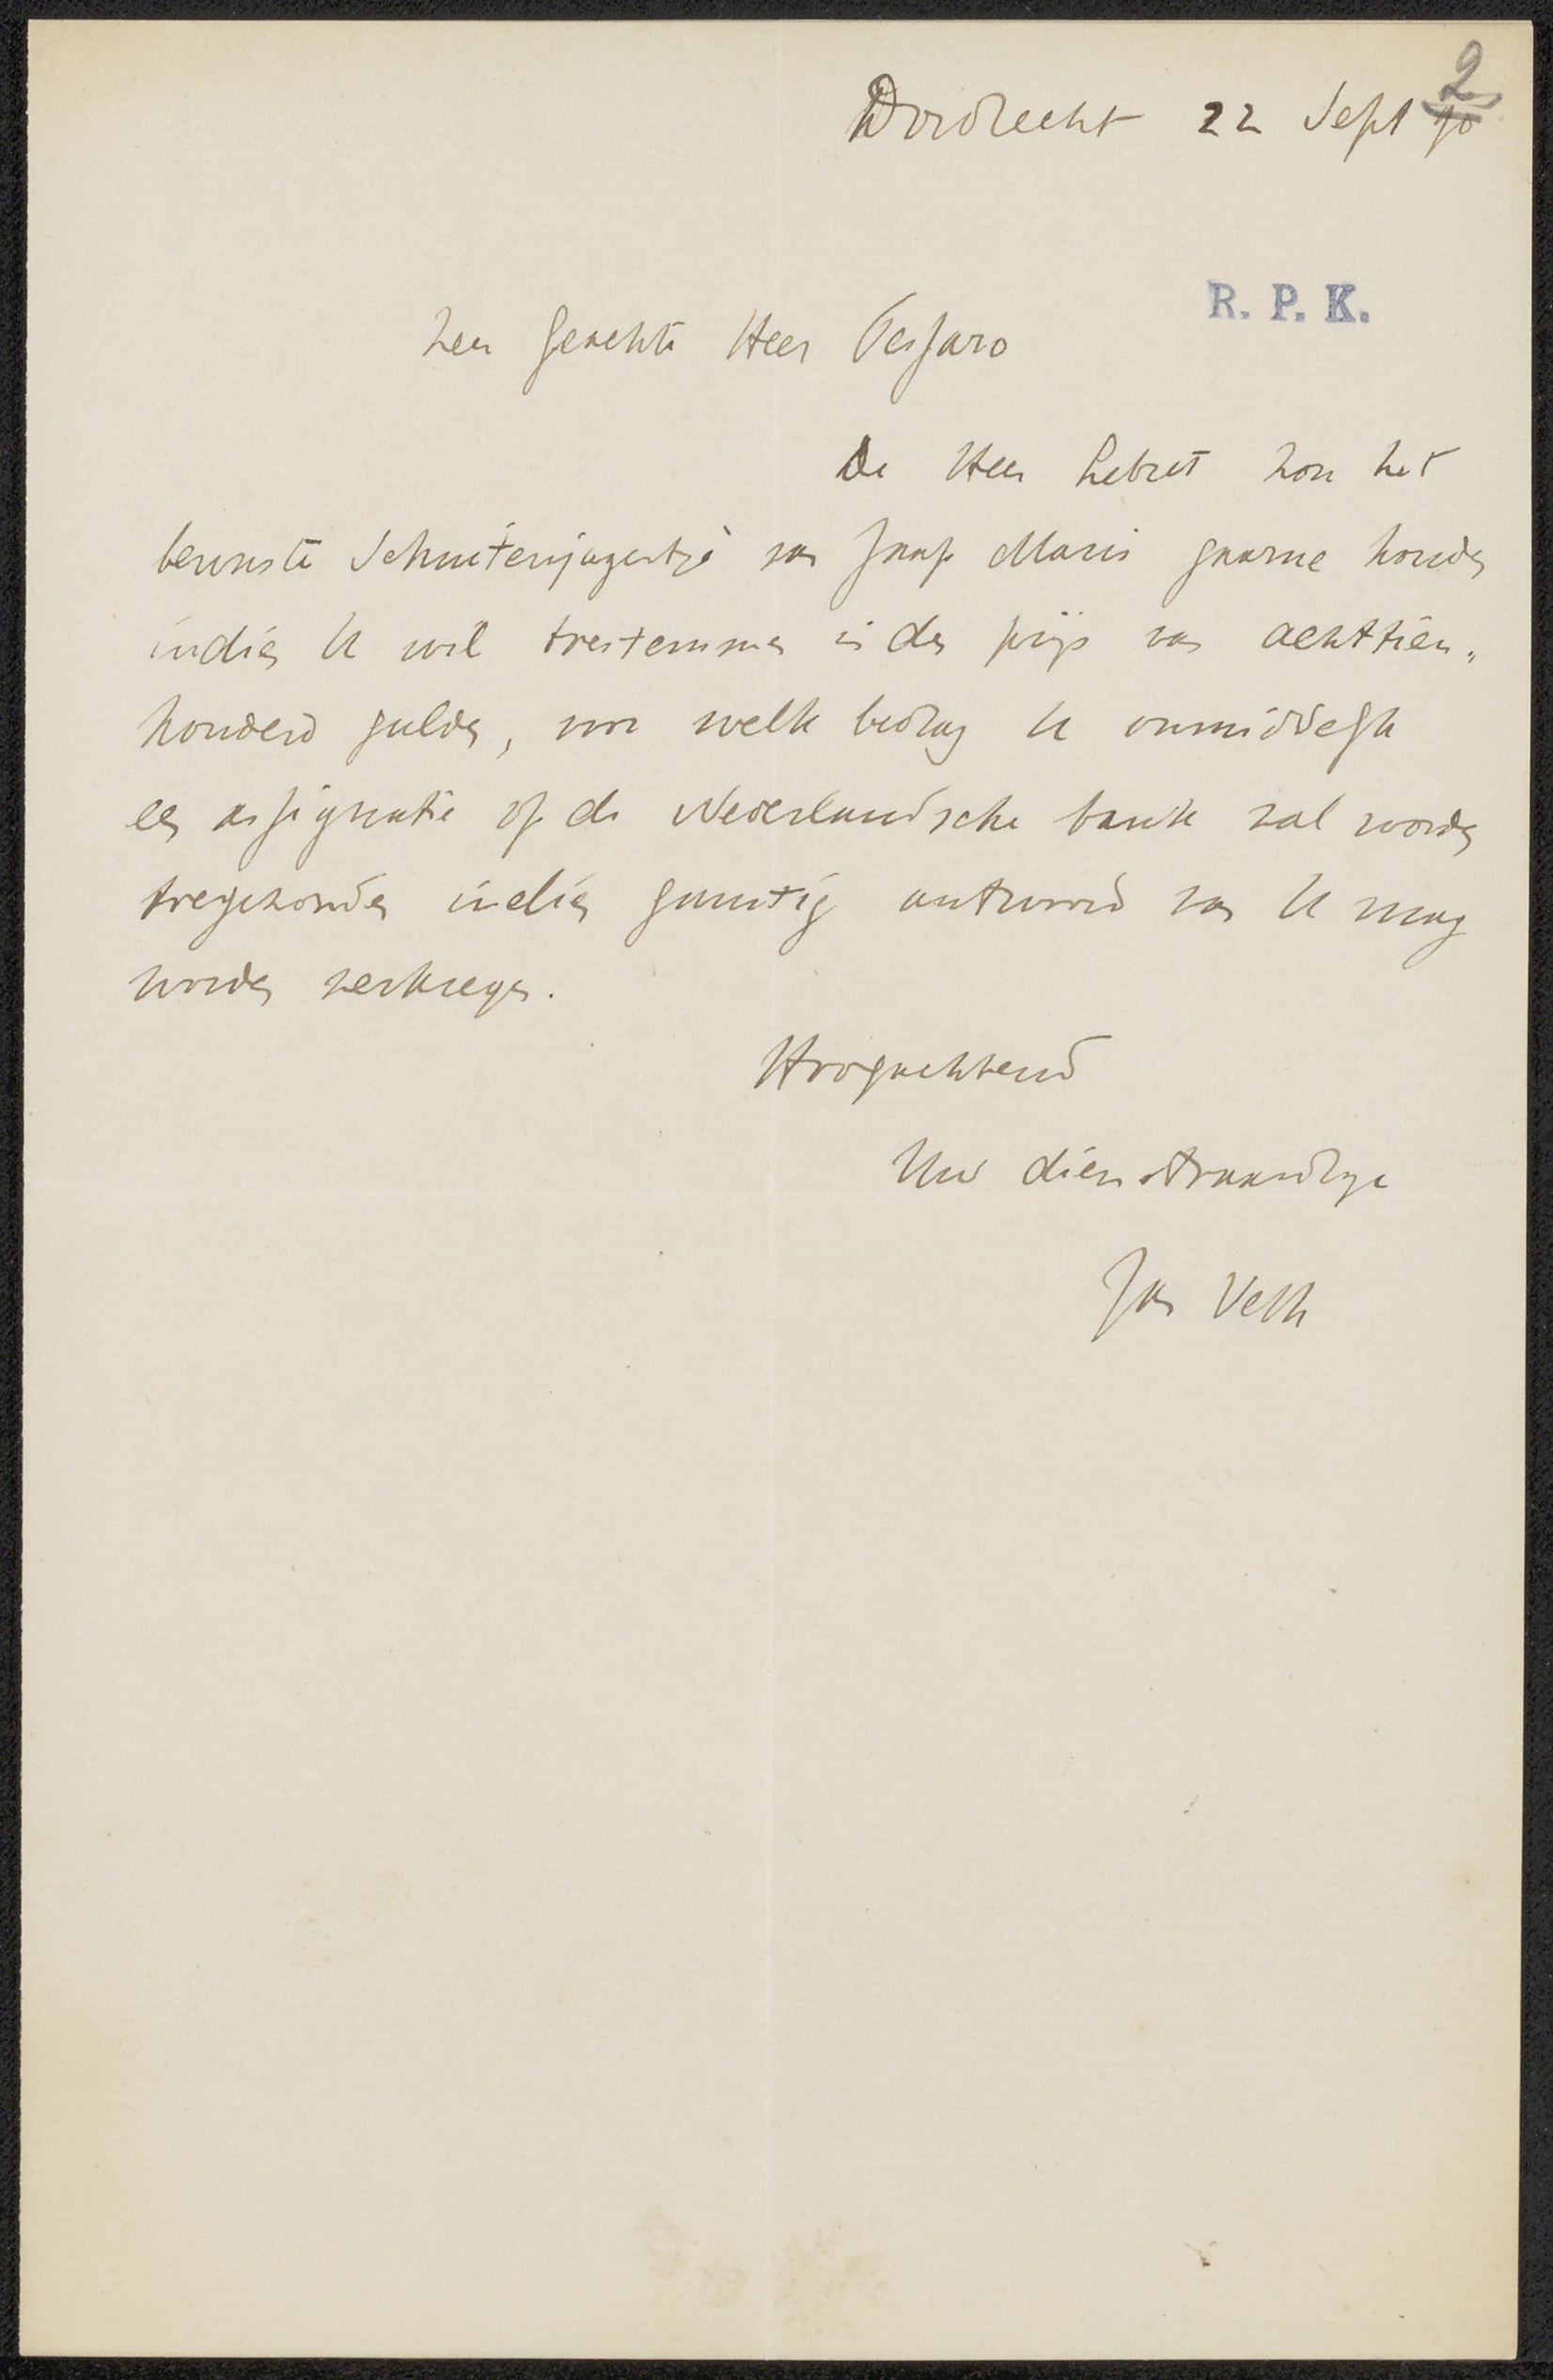 2
Dordrecht 22 Sept 90
R. P. K.
Zeer geachte Heer Pessaro
De Heer Lebret zou het
bewuste Schuitenjagertje van Jaap Maris gaarne houden
indien U wil toestemmen in den prijs van achttien„
honderd gulden, voor welk bedrag U onmiddelijk
een assignatie op de Nederlandsche bank zal worden
toegezonden indien gunstig antwoord van U mag
worden verkregen.
Hoogachtend
Uw dienstvaardige
Jan Veth